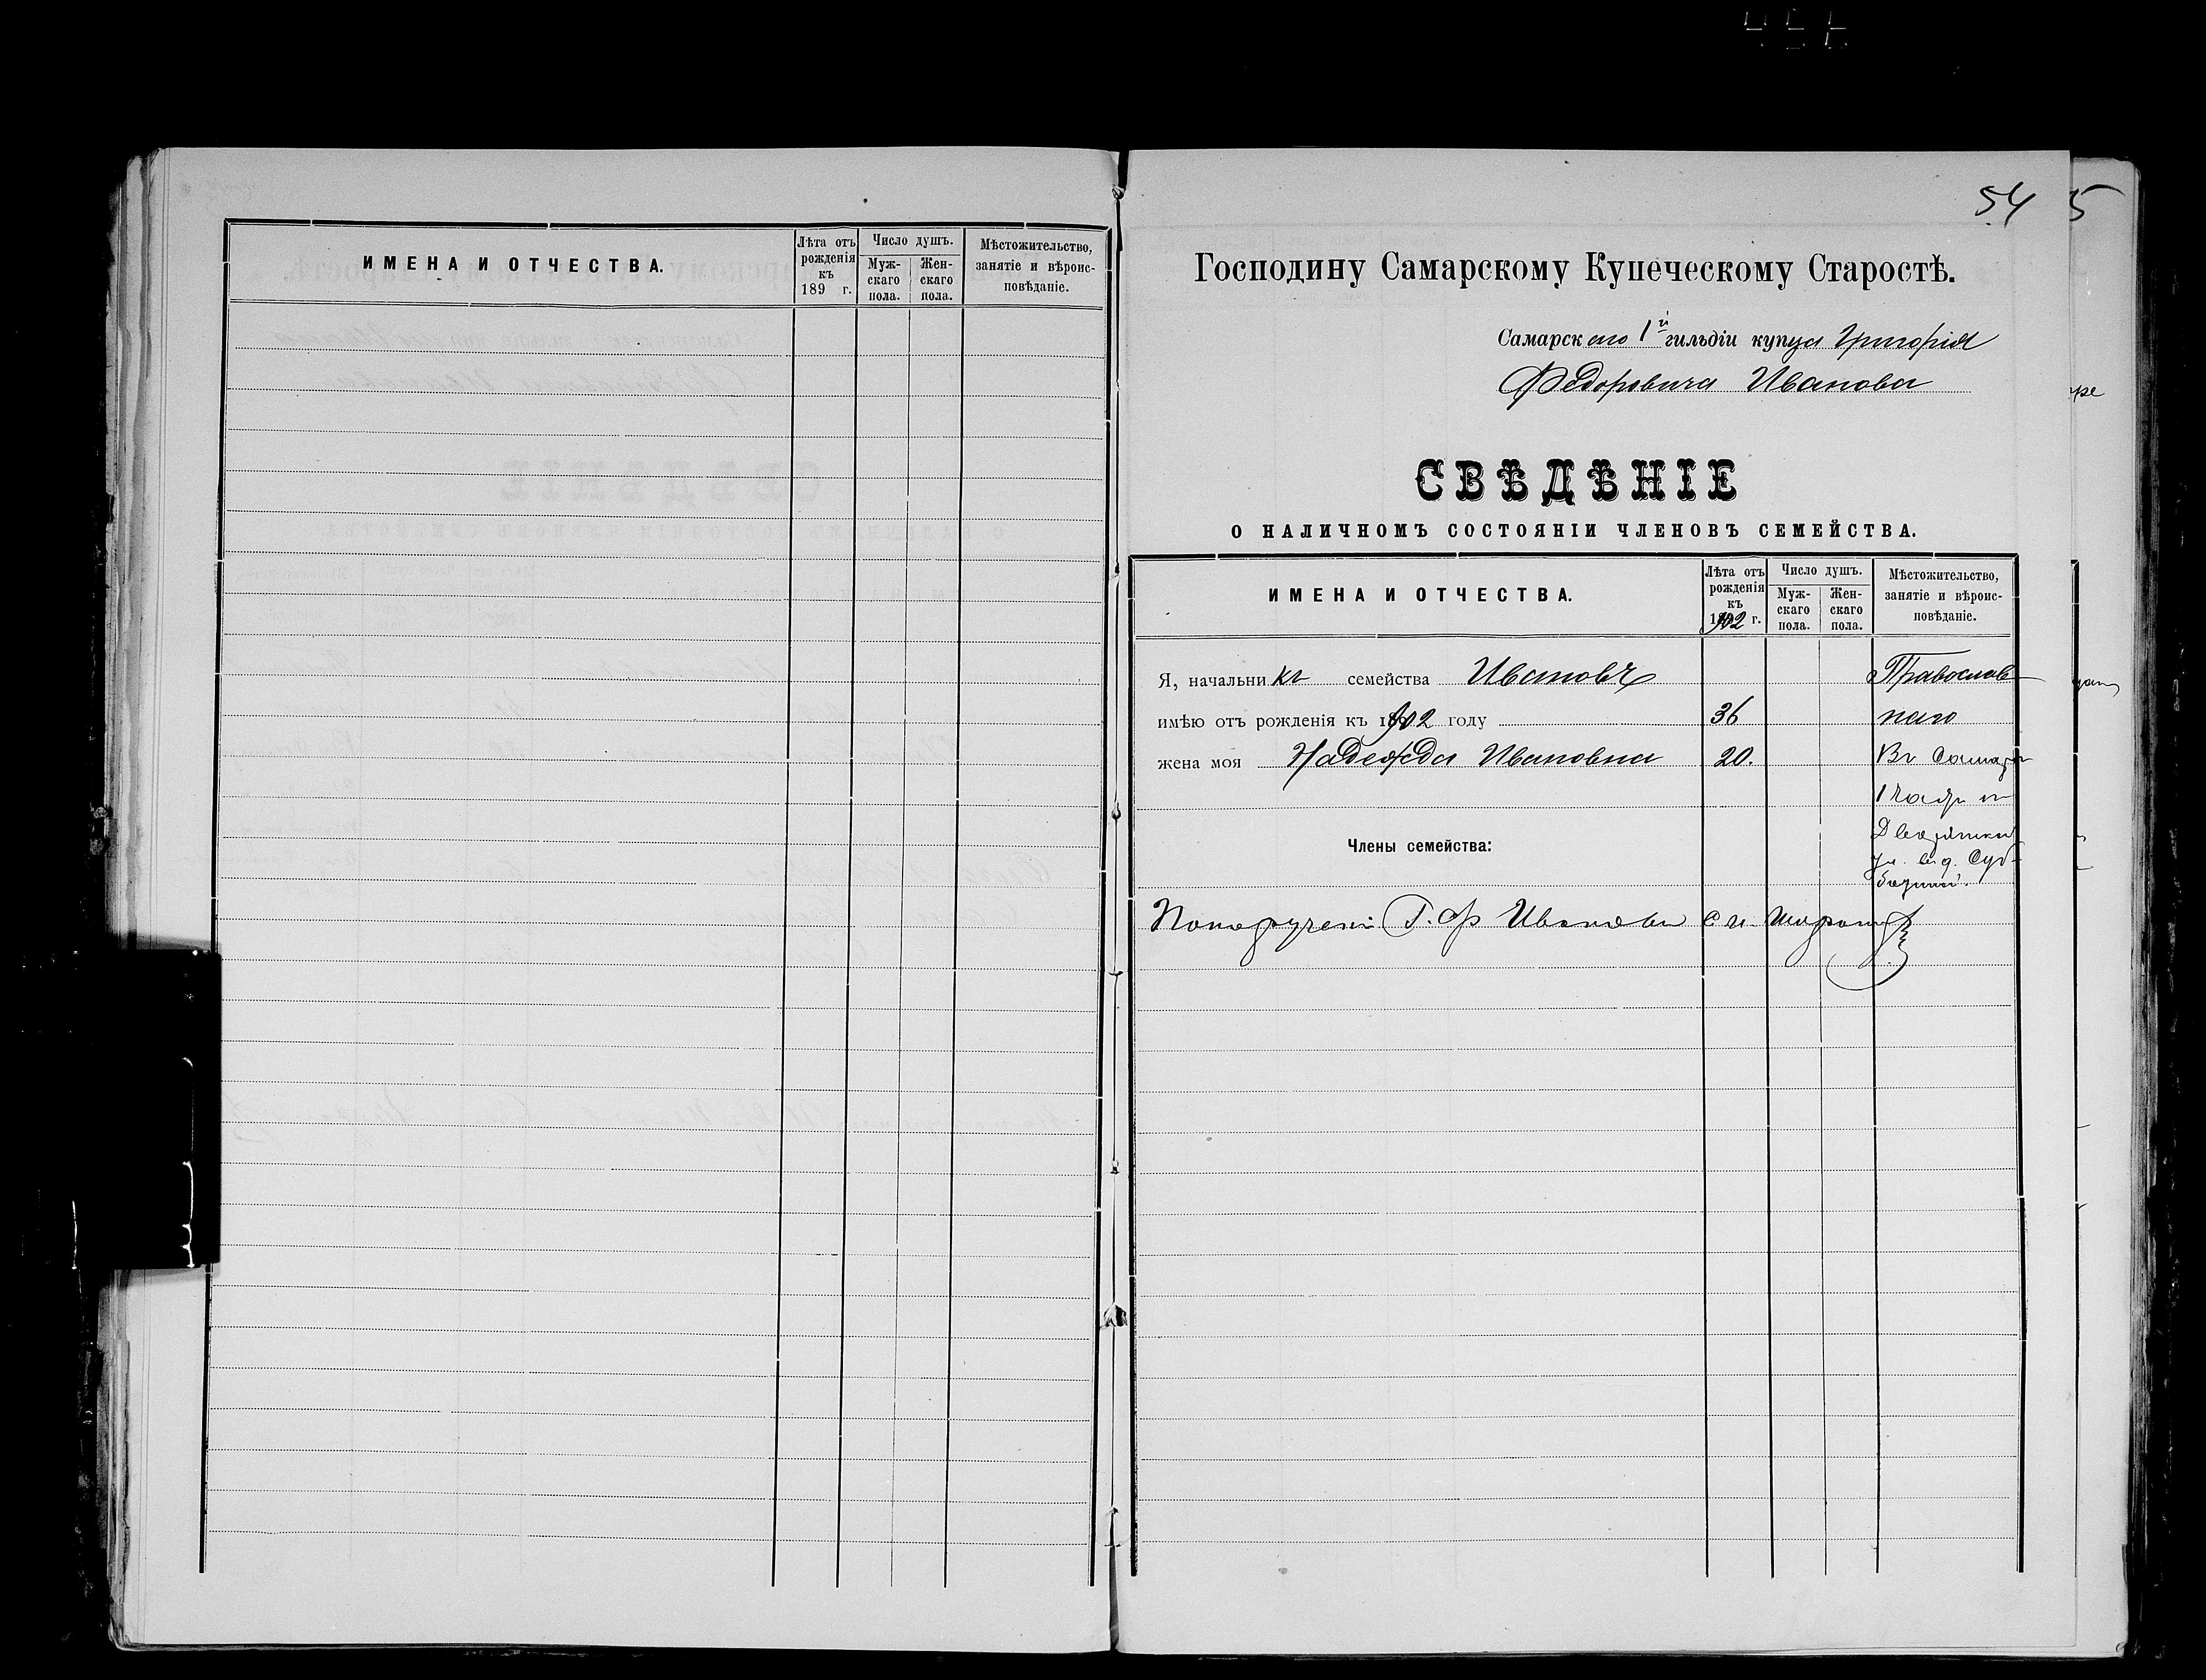 ИМЕНА И ОТЧЕСТВА.
Лѣта отъ рожденія къ 189 г.
Число душъ.
Муж-скаго пола.
Жен-скаго пола.
Мѣстожительство, занятіе и вѣроис-повѣданіе.
54
5
Господину Самарскому Купеческому Старостѣ.
Самарскаго 1й гильдіи купца Григорія
Федоровича Иванова
СВѢДѢНІЕ
О НАЛИЧНОМЪ СОСТОЯНІИ ЧЛЕНОВЪ СЕМЕЙСТВА.
ИМЕНА И ОТЧЕСТВА.
Лѣта отъ рожденія къ 1902 г.
Число душъ.
Муж-скаго пола.
Жен-скаго пола.
Мѣстожительство, занятіе и вѣроис-повѣданіе.
Я, начальникъ семейства Ивановъ Православ
имѣю отъ рожденія къ 1902 году 36 наго
жена моя Надежда Ивановна 20. Въ Самарѣ
1 части
Дворянской
ул. въ д. Суб-
Члены семейства:
По порученію Г. Ф Иванова